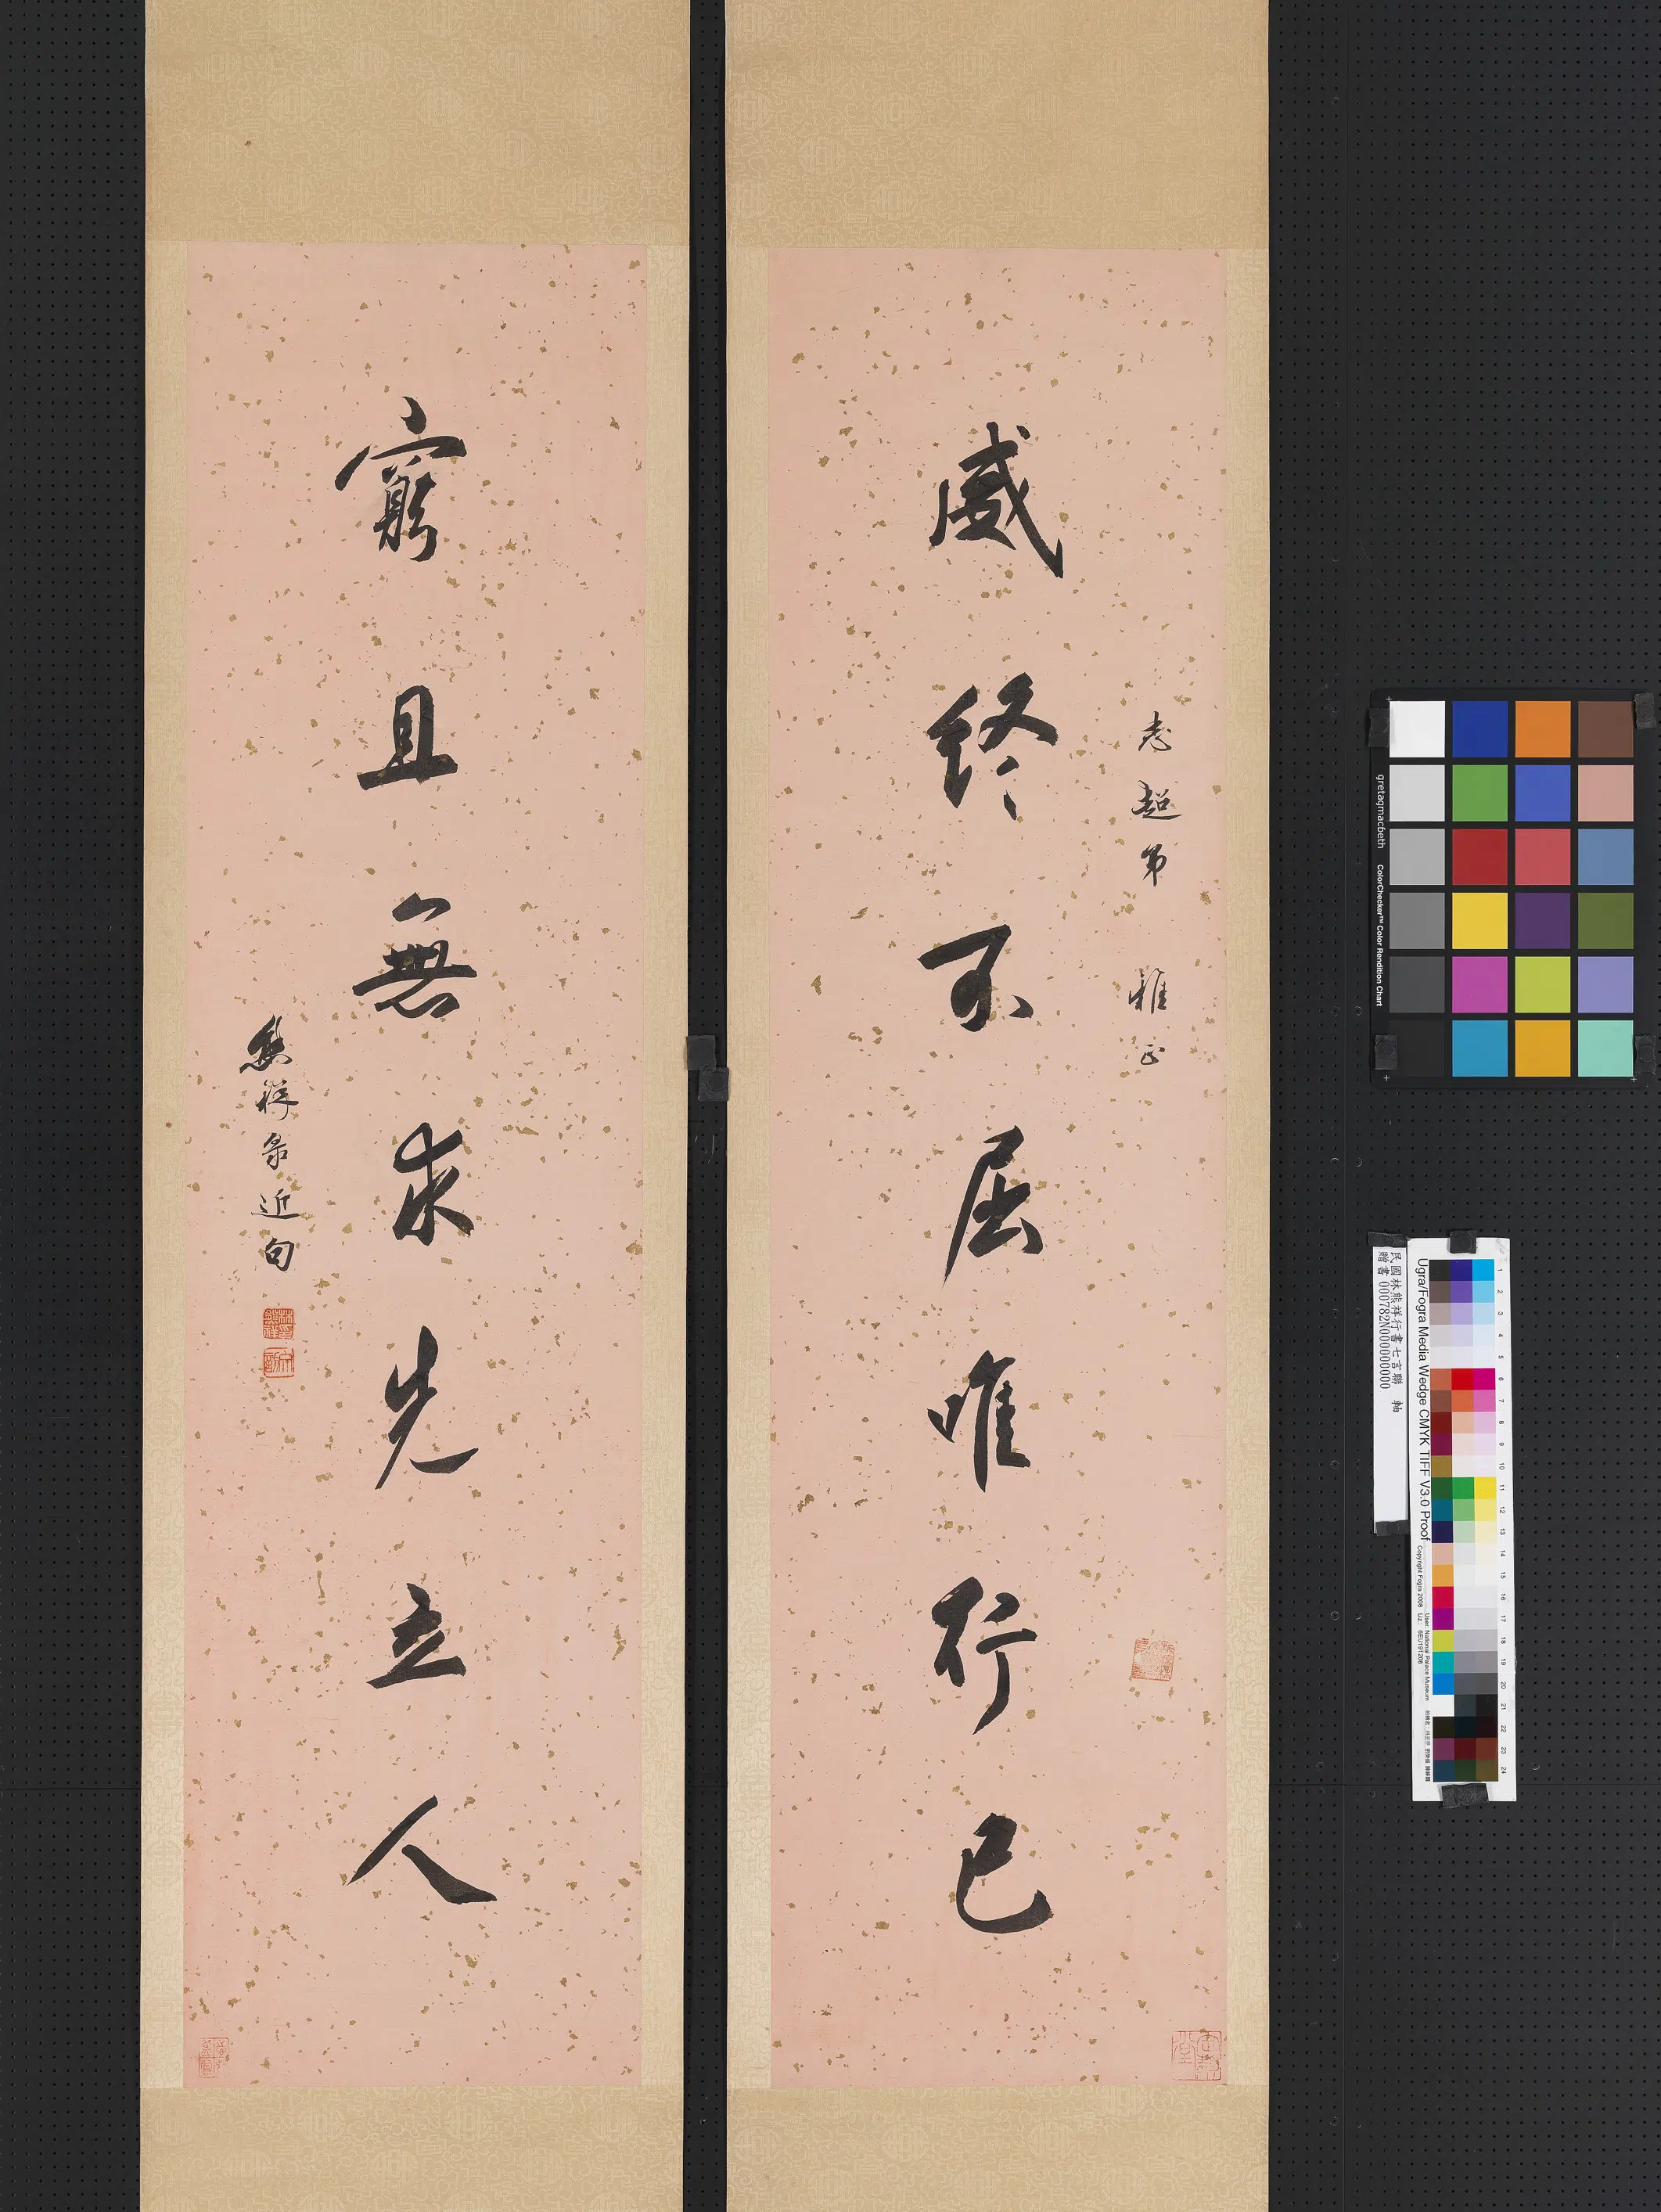 威終不屈唯行己
志超弟 雅正
窮且無求先立人
熊祥录近句
gretagmacbeth
ColorChecker™ Color Rendition Chart
民國林熊祥行書七言聯 軸
贈書000782N000000000
Ugra/Fogra Media Wedge CMYK TIFF V3.0 Proof
Copyright Fogra 2008
User: National Palace Museum
1
2
3
4
5
6
7
8
9
10
11
12
13
14
15
16
17
18
19
20
21
22
23
24